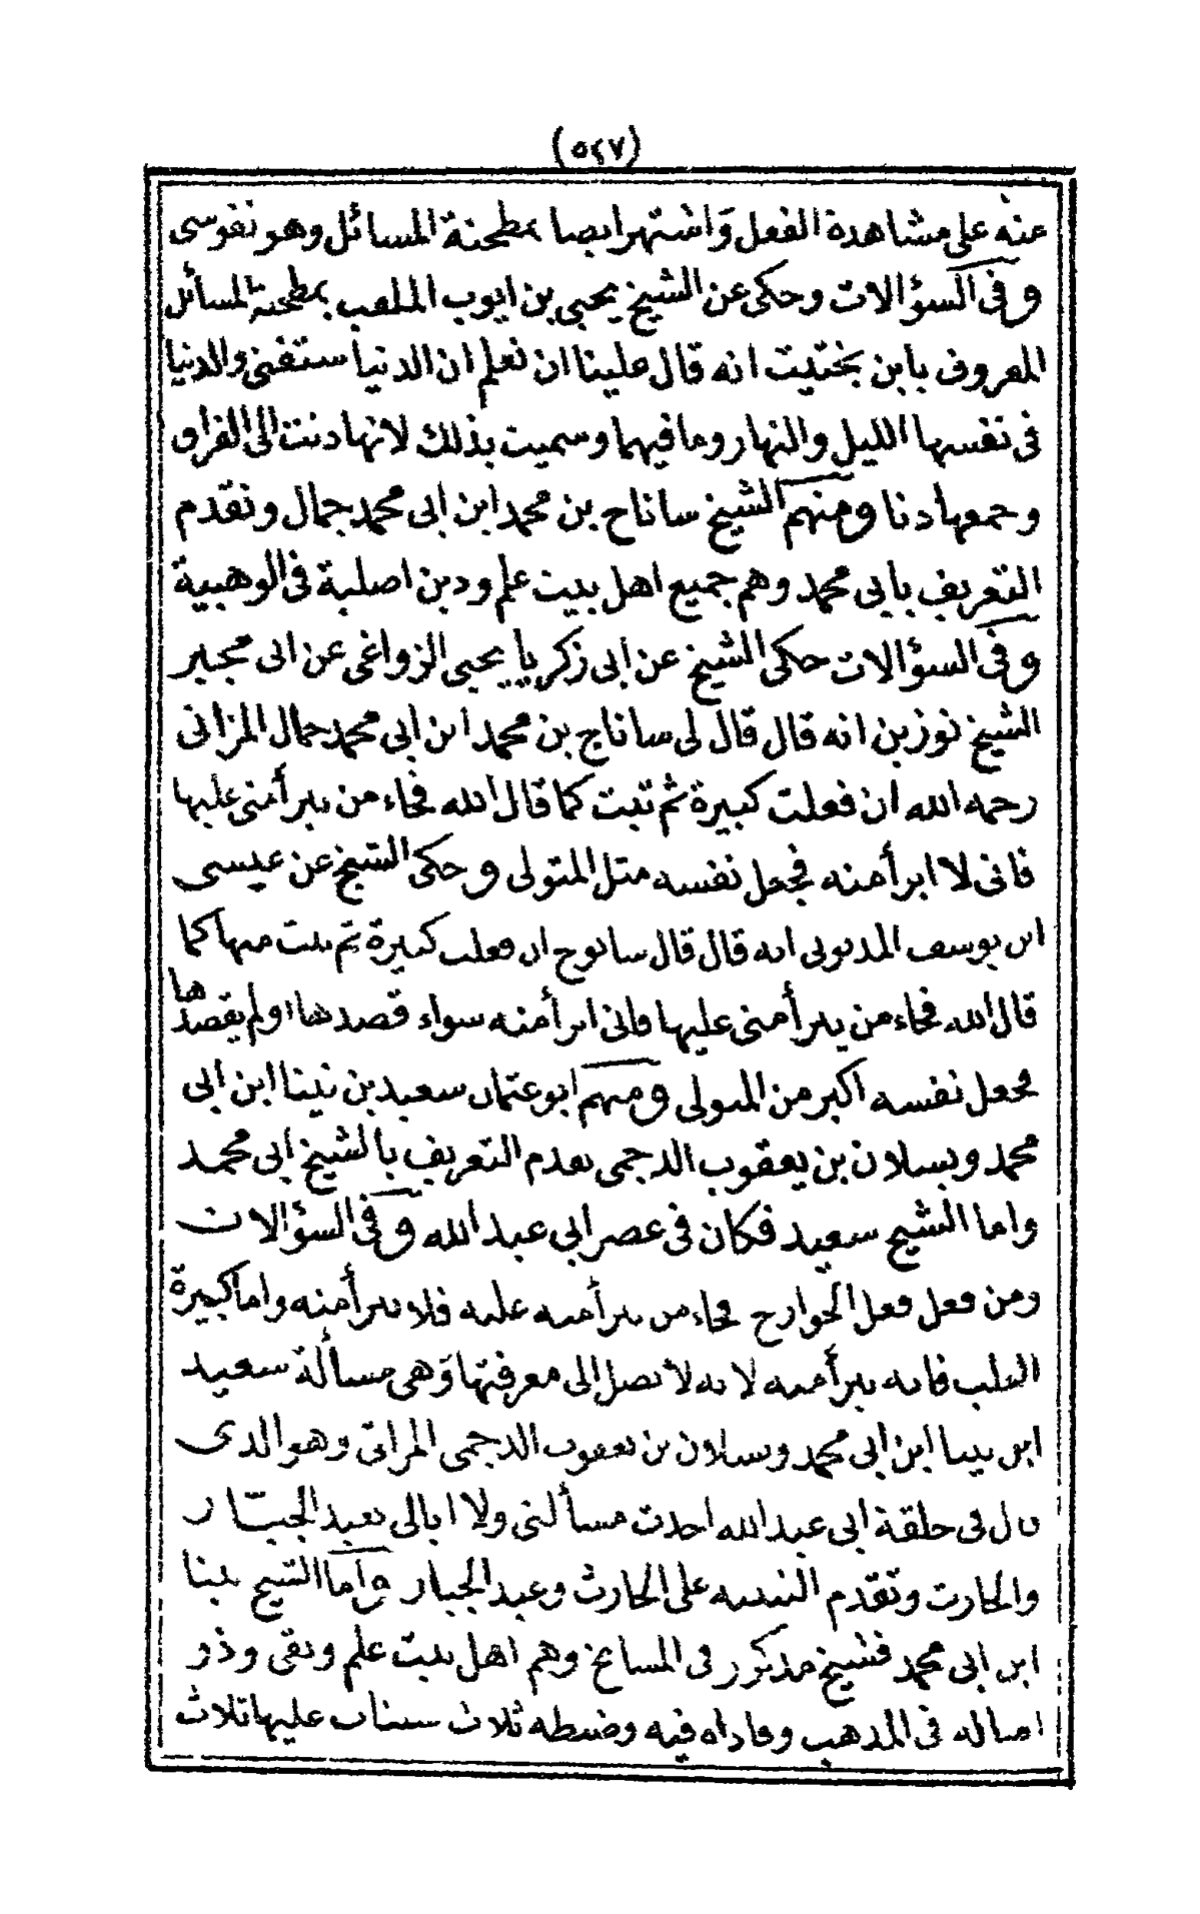 (٥٢٧)
عنه على مشاهدة الفعل واشتهر ايضا بمطحنة المسائل وهو نفوسى
وفى السؤالات وحكى عن الشيخ يحيى بن ايوب الملقب بمطحنة المسائل
المعروف بابن بختيت انه قال علينا ان نعلم ان الدنيا ستفنى والدنيا
فى نفسها الليل والنهار وما فيهما وسميت بذلك لانها دنت الى الفراق
وجمعها دنا ومنهم الشيخ ساناج بن محمد ابن ابى محمد جمال وتقدم
التعريف بابى محمد وهم جميع اهل بيت علم ودين اصلبة فى الوهبية
وفى السؤالات حكى الشيخ عن ابى زكريا يحيى الزواغى عن ابى مجبر
الشيخ نوزين انه قال قال لى ساناج بن محمد ابن ابى محمد جمال المزاتى
رحمه الله ان فعلت كبيرة ثم تبت كما قال الله فجاء من يبرأ منى عليها
فانى لا ابرأ منه فجعل نفسه مثل المتولى وحكى الشيخ عن عيسى
ابن يوسف المديونى انه قال قال سانوح ان فعلت كبيرة ثم تبت منها كما
قال الله فجاء من يبرأ منى عليها فانى ابرأ منه سواء قصدها او لم يقصدها
فجعل نفسه اكبر من المتولى ومنهم ابو عثمان سعيد بن نينا ابن ابى
محمد ويسلان بن يعقوب الدجمى تقدم التعريف بالشيخ ابى محمد
واما الشيخ سعيد فكان فى عصر ابى عبد الله وفى السؤالات
ومن فعل فعل الجوارح فجاء من يبرأ منه عليه فلا يبرأ منه واما كبيرة
القلب فانه يبرأ منه لانه لا تصل الى معرفتها وهى مسألة سعيد
ابن نينا ابن ابى محمد ويسلان بن يعقوب الدجمى المزاتى وهو الذى
قال فى حلقة ابى عبد الله اخذت مسألتى ولا ابالى بعبد الجبار
والحارث وتقدم التنبيه على الحارث وعبد الجبار واما الشيخ نينا
ابن ابى محمد فشيخ مذكور فى المشايخ وهم اهل بيت علم وتقى وذو
اصاله فى المذهب وفاداه فيه وضبطه ثلاث عليها ثلاث